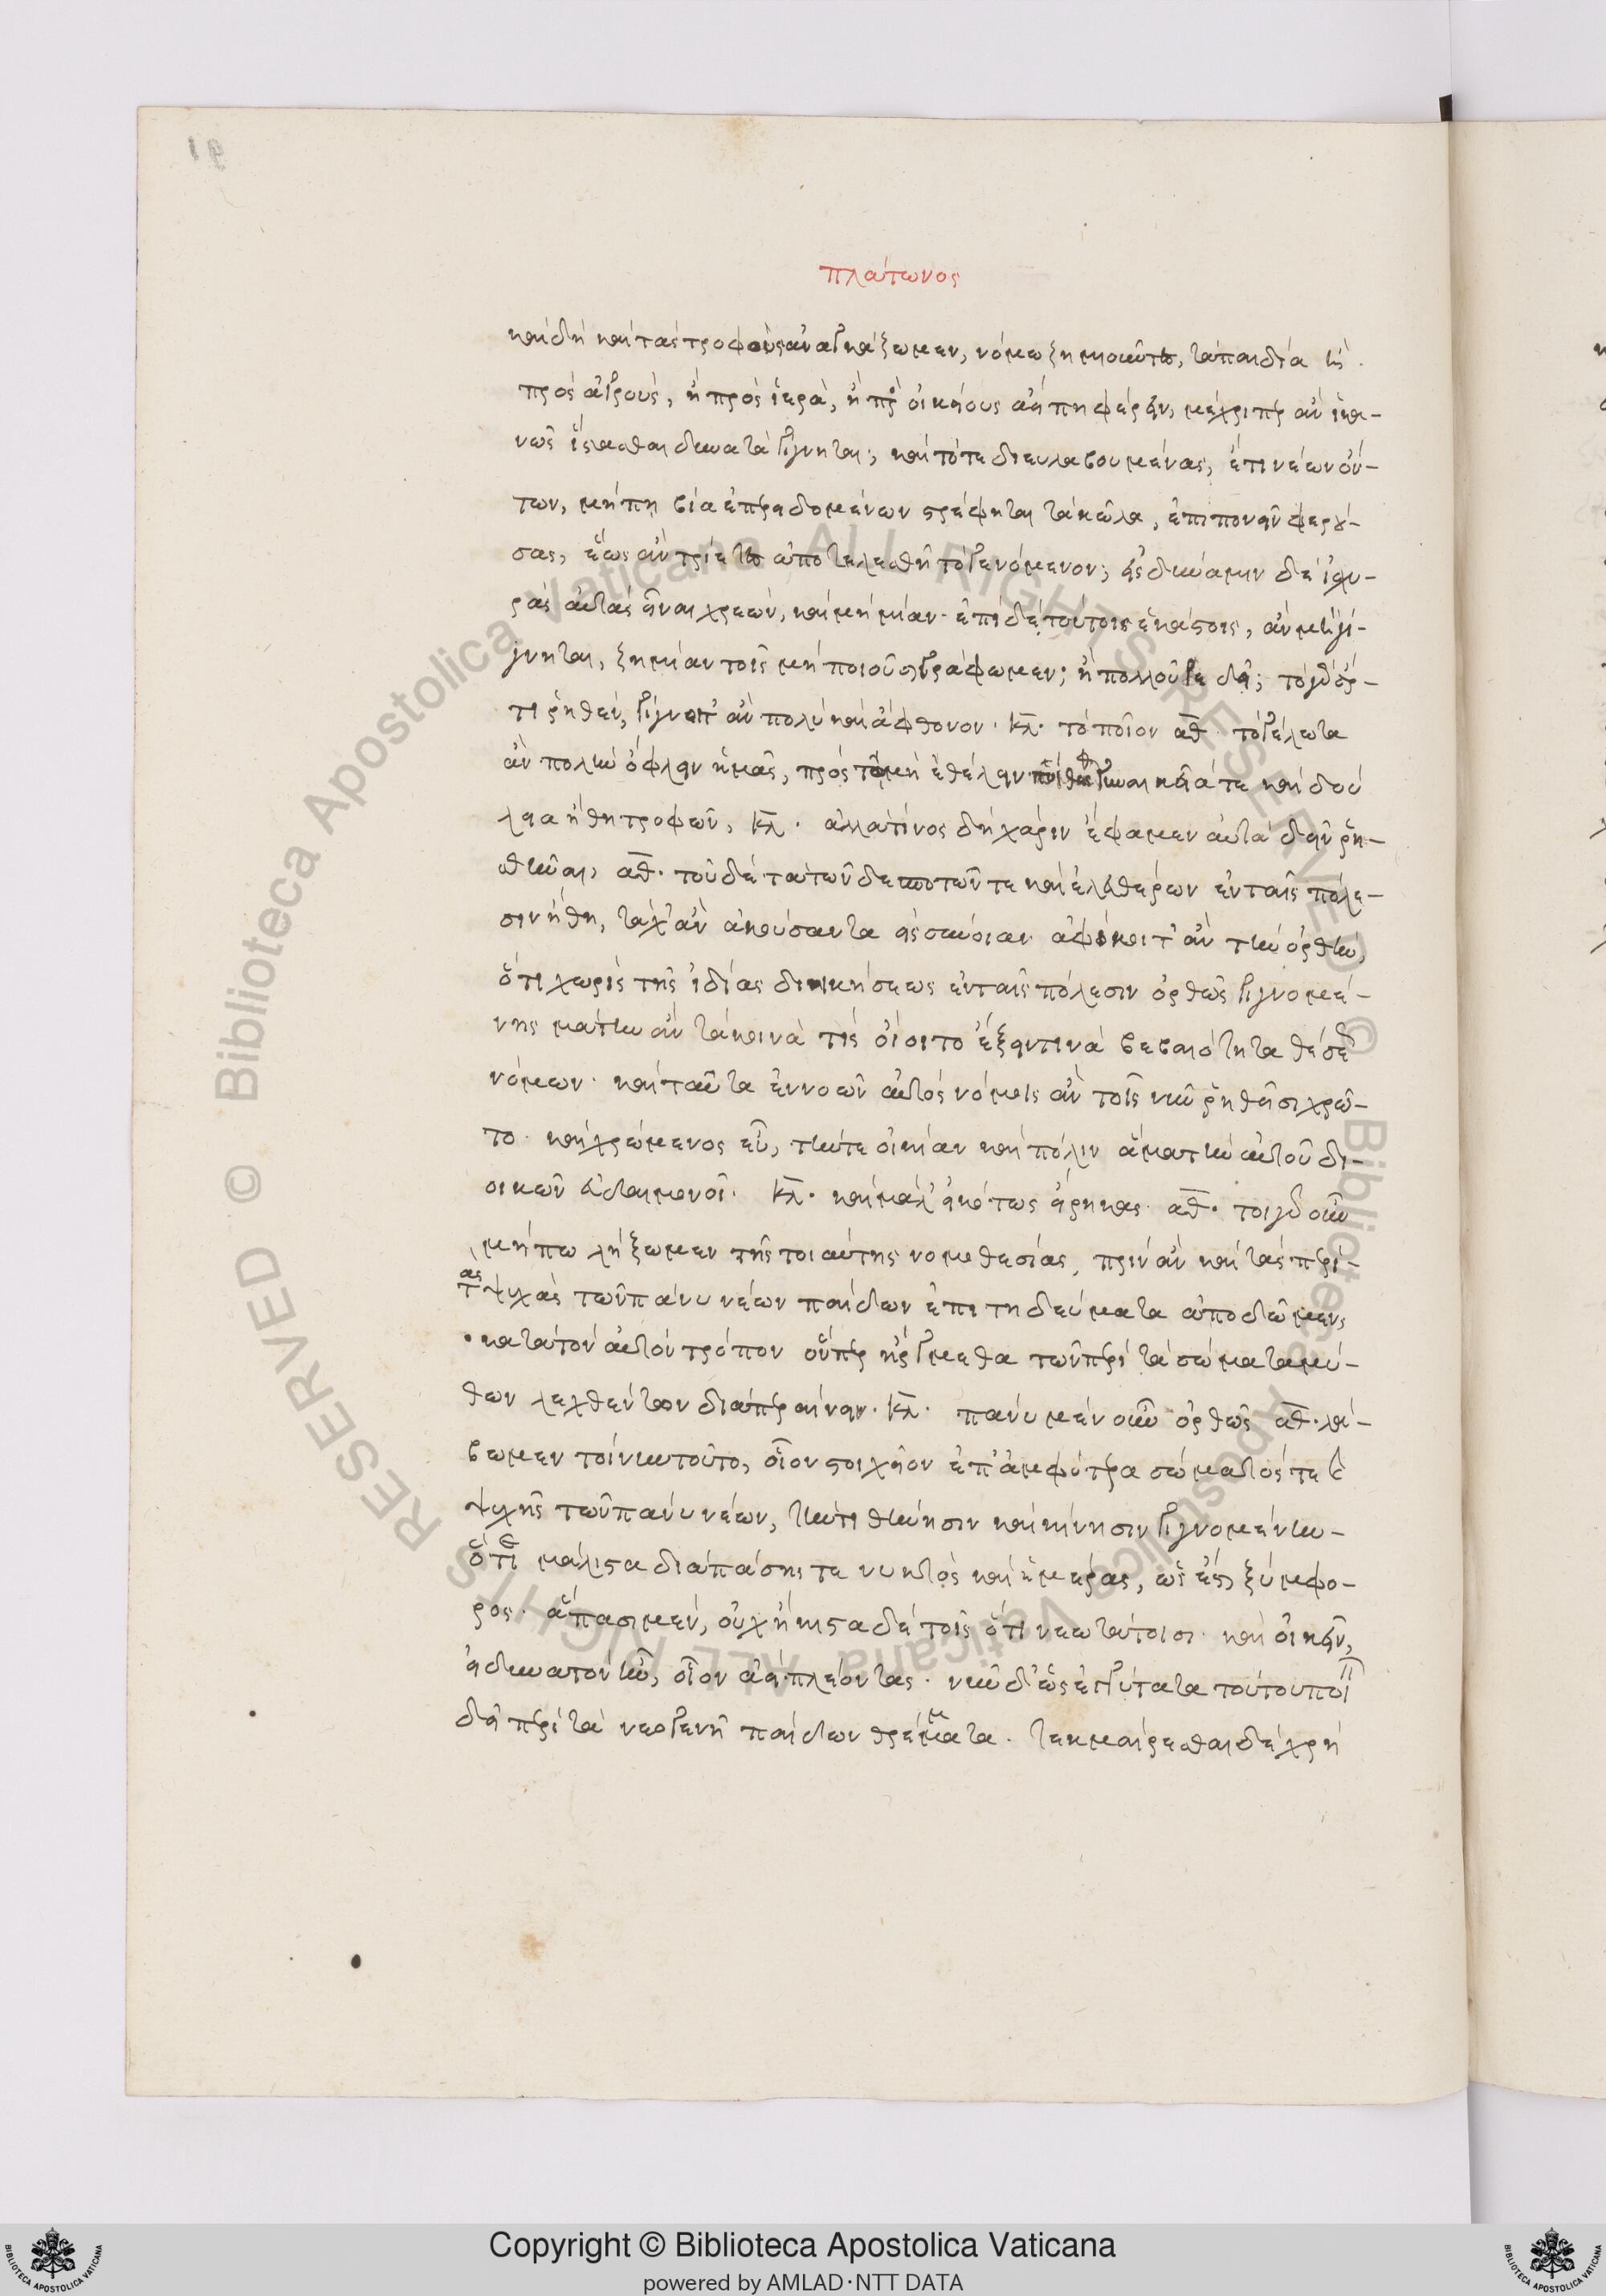 91
πλάτωνος
καὶ δὴ καὶ τὰς τροφοὺς ἀναγκάζωμεν, νόμω ζημιοῦντες, τὰ παιδία ἢ
πρὸς ἀγροὺς, ἢ πρὸς ἱερὰ, ἢ πρὸς οἰκείους ἀεί πη φέρειν, μέχριπερ ἂν ἱκα-
νῶς ἵστασθαι δυνατὰ γίγνηται; καὶ τότε διευλαβουμένας, ἔτι νέων ὄν-
των, μήπη βία ἐπερειδομένων στρέφηται τὰ κῶλα, ἐπιπονεῖν φερού-
σας, ἕως ἂν τριετὲς ἀποτελεσθῆ τὸ γενόμενον; εἰς δύναμιν δὲ ἰσχυ-
ρὰς αὐτὰς εἶναι χρεὼν, καὶ μὴ μίαν· ἐπὶ δὲ τούτοις ἑκάστοις, ἂν μὴ γί-
γνηται, ζημίαν τοῖς μὴ ποιοῦσι γράφωμεν; ἢ πολλοῦ γε δεῖ; τὸ γὰρ ἄρ-
τι ῥηθὲν, γίγνοιτ' ἂν πολὺ καὶ ἄφθονον. κλ. τὸ ποῖον αθ. τὸ γέλωτα
ἂν πολὺν ὀφλεῖν ἡμᾶς, πρὸς τῶ μὴ ἐθέλειν πείθεσθαι γυναικεῖά τε καὶ δού
λεια ἤθη τροφῶν, κλ. ἀλλὰ τίνος δὴ χάριν ἔφαμεν αὐτὰ δεῖν ῥη-
θῆναι, αθ. τοῦδε· τὰ τῶν δεσποτῶν τε καὶ ἐλευθέρων ἐν ταῖς πόλε-
σιν ἤθη, τάχ' ἂν ἀκούσαντα εἰς σύννοιαν ἀφίκοιτ' ἂν τὴν ὀρθὴν,
ὅτι χωρὶς τῆς ἰδίας διοικήσεως ἐν ταῖς πόλεσιν ὀρθῶς γιγνομέ-
νης μάτην ἂν τὰ κοινά τις οἴοιτο ἕξειν τινὰ βεβαιότητα θέσεως
νόμων· καὶ ταῦτα ἐννοῶν αὐτὸς νόμοις ἂν τοῖς νῦν ῥηθεῖσι χρῶ-
το· καὶ χρώμενος εὖ, τήν τε οἰκίαν καὶ πόλιν ἅμα τὴν αὑτοῦ δι-
οικῶν εὐδαιμονοῖ. κλ. καὶ μάλ' εἰκότως εἴρηκας. αθ. τοιγαροῦν
μήπω λήξωμεν τῆς τοιαύτης νομοθεσίας, πρὶν ἂν καὶ τὰς περὶ
τὰς ψυχὰς τῶν πάνυ νέων παίδων ἐπιτηδεύματα ἀποδῶμεν,
κατὰ τὸν αὐτὸν τρόπον οὗπερ ἤργμεθα τῶν περὶ τὰ σώματα μύ-
θων λεχθέντων διαπεραίνειν. κλ. πάνυ μὲν οὖν ὀρθῶς αθ. λά-
βωμεν τοίνυν τοῦτο, οἷον στοιχεῖον ἐπ' ἀμφότερα σώματός τε καὶ
ψυχῆς τῶν πάνυ νέων, τὴν τιθήνησιν καὶ κίνησιν γιγνομένην
ὅτι μάλιστα διὰ πάσης τε νυκτὸς καὶ ἡμέρας, ὡς ἔστι ξύμφο-
ρος· ἅπασι μὲν, οὐχ ἥκιστα δὲ τοῖς ὅτι νεωτάτοισι· καὶ οἰκεῖν,
εἰ δυνατὸν ἦν, οἷον ἀεὶ πλέοντας· νῦν δ' ὡς ἐγγύτατα τούτου ποιεῖν
δεῖ περὶ τὰ νεογενῆ παίδων θρέμματα. τεκμαίρεσθαι δὲ χρὴ
© Biblioteca Apostolica Vaticana ALL RIGHTS RESERVED
© Biblioteca Apostolica Vaticana ALL RIGHTS RESERVED
Copyright © Biblioteca Apostolica Vaticana
powered by AMLAD·NTT DATA